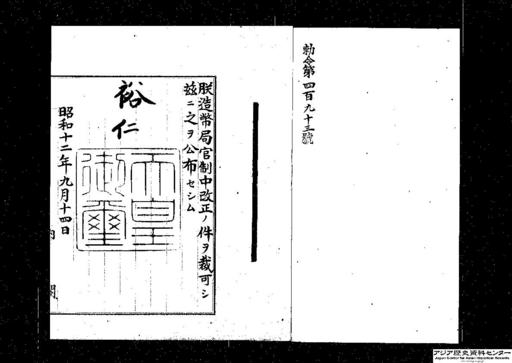 勅令第四百九十三號
朕造幣局官制中改正ノ件ヲ裁可シ
玆ニ之ヲ公布セシム
裕仁
天皇御璽
昭和十二年九月十四日
内閣
アジア歴史資料センター
Japan Center for Asian Historical Records